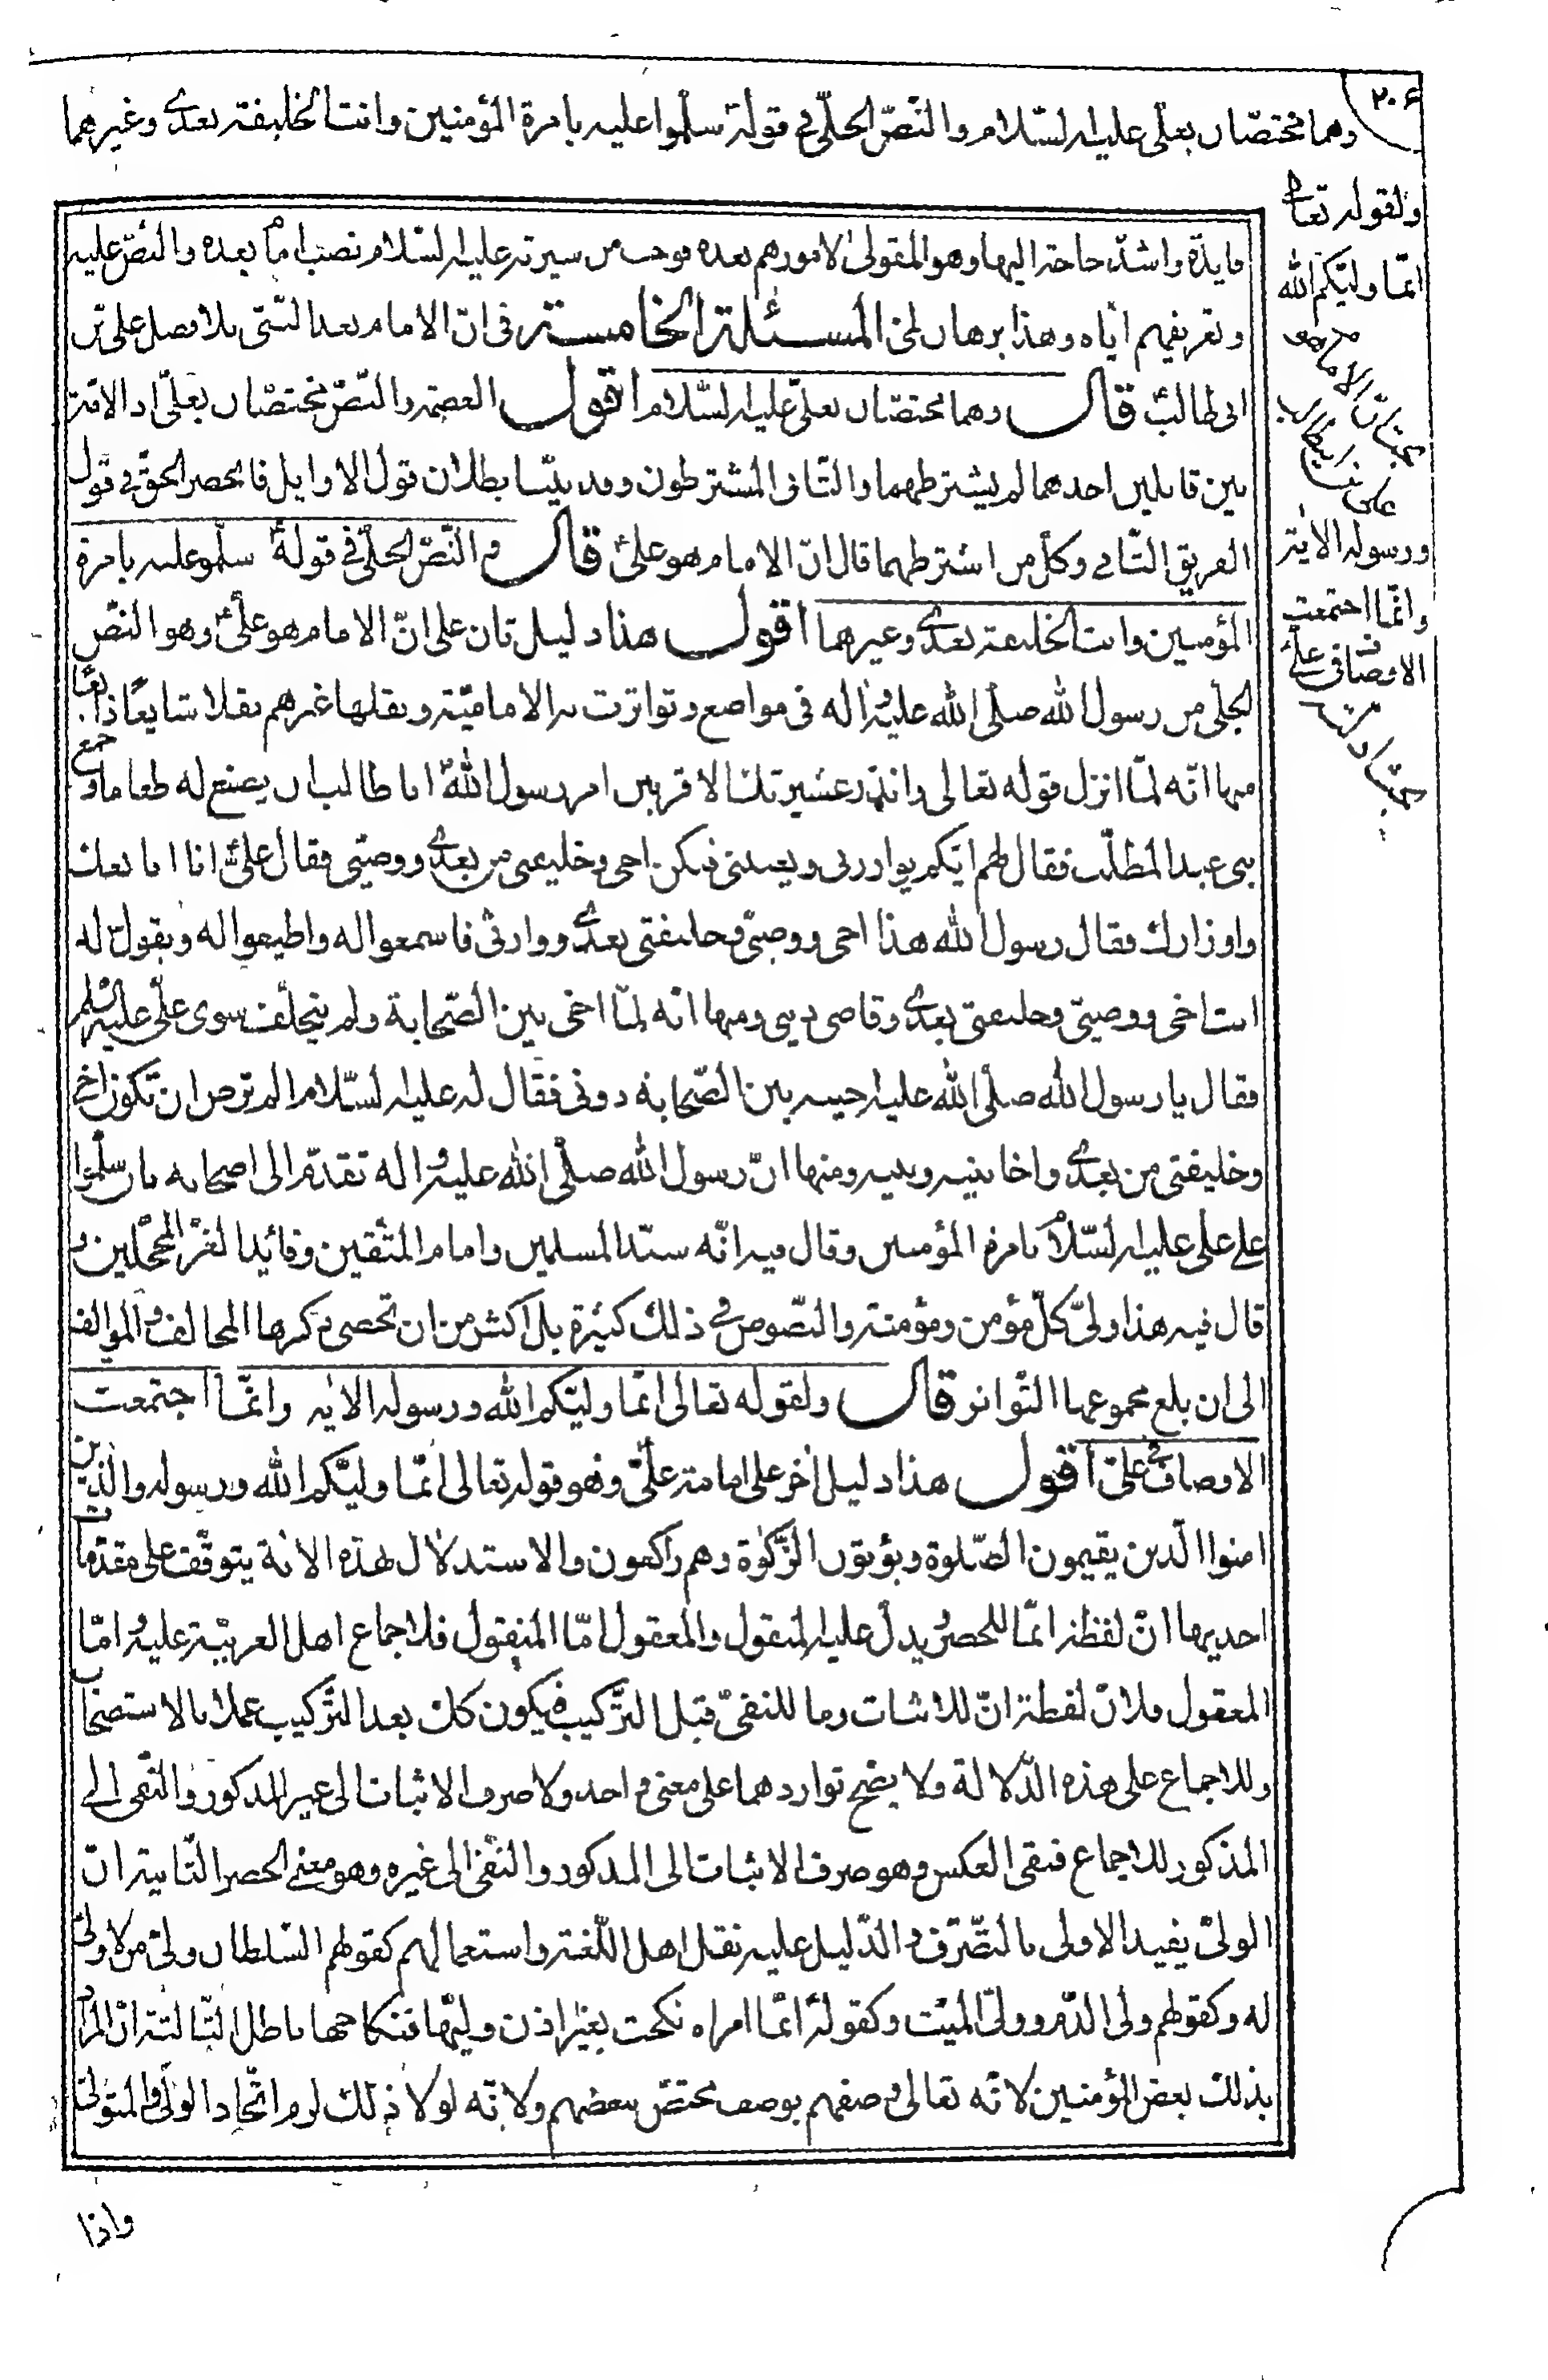 ٢٠۶
وهما مختصان بعلی علیه السّلام والنّصّ الجلّی فی قوله سلّموا علیه بامرة المؤمنین وانت الخلیفة بعدی وغیرهما
ولقوله تعا
انّما ولیّکم الله
ورسوله الایة
وانّما اجتمعت
الاوصاف فی علی
فایدة واشدّ حاجة الیها وهو المتولی لامورهم بعده فوجب من سیرته علیه السّلام نصب امام بعده والنّصّ علیه
وتعریفهم ایاه وهذا برهان لمّی المسئلة الخامسة فی انّ الامام بعد النّبی بلا فصل علی بن
ابی طالب قال وهما مختصّان بعلی علیه السّلام اقول العصمة والنّصّ مختصّان بعلیّ اذ الامّة
بین قایلین احدهما لم یشترطهما والثّانی المشترطون وقد بیّنّا بطلان قول الاوایل فانحصر الحقّ فی قول
الفریق الثّانی وکلّ من اشترطهما قال انّ الامام هو علی قال والنّصّ الجلّی فی قوله سلّموا علیه بامرة
المؤمنین وانت الخلیفة بعدی وغیرهما اقول هذا دلیل ثان علی انّ الامام هو علیّ وهو النّصّ
الجلی من رسول الله صلّی الله علیه واله فی مواضع وتواترت به الامامیّة ونقلها غیرهم نقلا شایعًا ذایعا
منها انّه لمّا انزل قوله تعالی وانذر عشیرتک الاقربین امر رسول الله ابا طالب ان یصنع له طعاما وجمع
بنی عبد المطلّب فقال لهم ایّکم یوازرنی ویعیننی فیکن اخی وخلیفتی من بعدی ووصیّی فقال علیّ انا ابایعک
واوزارک فقال رسول الله هذا اخی ووصیّی وخلیفتی بعدی ووارثی فاسمعوا له واطیعوا له وبقوله له
انت اخی ووصیّی وخلیفتی بعدی وقاضی دینی ومنها انّه لمّا اخی بین الصّحابة ولم یتخلّف سوی علیّ علیه السّلم
فقال یا رسول الله صلّی الله علیه اخیت بین الصّحابة دونی فقال له علیه السّلام الم ترض ان تکون اخی
وخلیفتی من بعدی واخا بینه وبینه ومنها انّ رسول الله صلّی الله علیه واله تقدّم الی اصحابه بان سلّموا
علی علی علیه السّلام بامرة المؤمنین وقال فیه انّه سیّد المسلمین وامام المتّقین وقائد الغرّ المحجّلین و
قال فیه هذا ولیّ کلّ مؤمن ومؤمنة والنّصوص فی ذلک کثیرة بل اکثر من ان تحصی ذکرها المخالف والموالف
الی ان بلغ مجموعها التّواتر قال ولقوله تعالی انّما ولیّکم الله ورسوله الایه وانّما اجتمعت
الاوصاف فی علیّ اقول هذا دلیل اخر علی امامة علیّ وهو قوله تعالی انّما ولیّکم الله ورسوله والذین
امنوا الّذین یقیمون الصّلوة ویؤتون الزّکوة وهم راکعون والاستدلال بهذه الایة یتوقّف علی مقدّمات
احدیها انّ لفظة انّما للحصر ویدلّ علیه المنقول والمعقول امّا المنقول فلاجماع اهل العربیّة علیه وامّا
المعقول فلانّ لفظة انّ للاثبات وما للنفی قبل الترّکیب فیکون کک بعد الترّکیب عملا بالاستصحاب
وللاجماع علی هذه الدّلالة ولا یصّح تواردهما علی معنی واحد ولا صرف الاثبات الی غیر المذکور والنّفی الی
المذکور للاجماع فبقی العکس وهو صرف الاثبات الی المذکور والنّفی الی غیره وهو معنی الحصر الثّانیة انّ
الولیّ یفید الاولی بالتّصّرف والدّلیل علیه نقل اهل اللّغة واستعمالهم کقولهم السّلطان ولیّ من لا ولیّ
له وکقولهم ولی الدّم وولیّ المیّت وکقوله ایّما امراه نکحت بغیر اذن ولیّها فنکاحها باطل الثّالثة انّ المراد
بذلک بعض المؤمنین لانّه تعالی وصفهم بوصف مختصّ ببعضهم ولانّه لولا ذلک لزم اتّحاد الولیّ والمتولّی
واذا